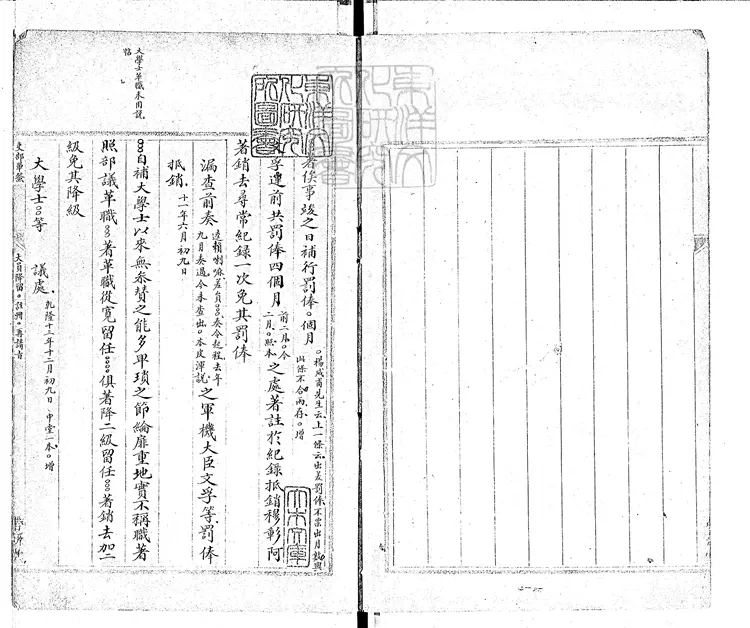 者俟事竣之日補行罰俸○個月○楊咸甫先生云上一條云出差罰俸不當出月數與此條不合兩存○增
孚遵前共罰俸四個月前二月○今二月○照本之處著註於紀錄抵銷穆彰阿
著銷去尋常紀錄一次免其罰俸
漏查前奏九月奏過今未查出○本皮渾說之軍機大臣文孚等罰俸
抵銷十一年六月初九日
○○自補大學士以來無參贊之能多卑瑣之節綸扉重地實不稱職著
照部議革職○○著革職從寬留任○○○俱著降二級留任○○著銷去加二
級免其降級
大學士○○等 議處乾隆十三年十二月初九日中堂一本○增
吏部筆籤
大員降留○註冊○再請旨
大學士革職本用說帖
東洋文化研究所圖書
大木文庫